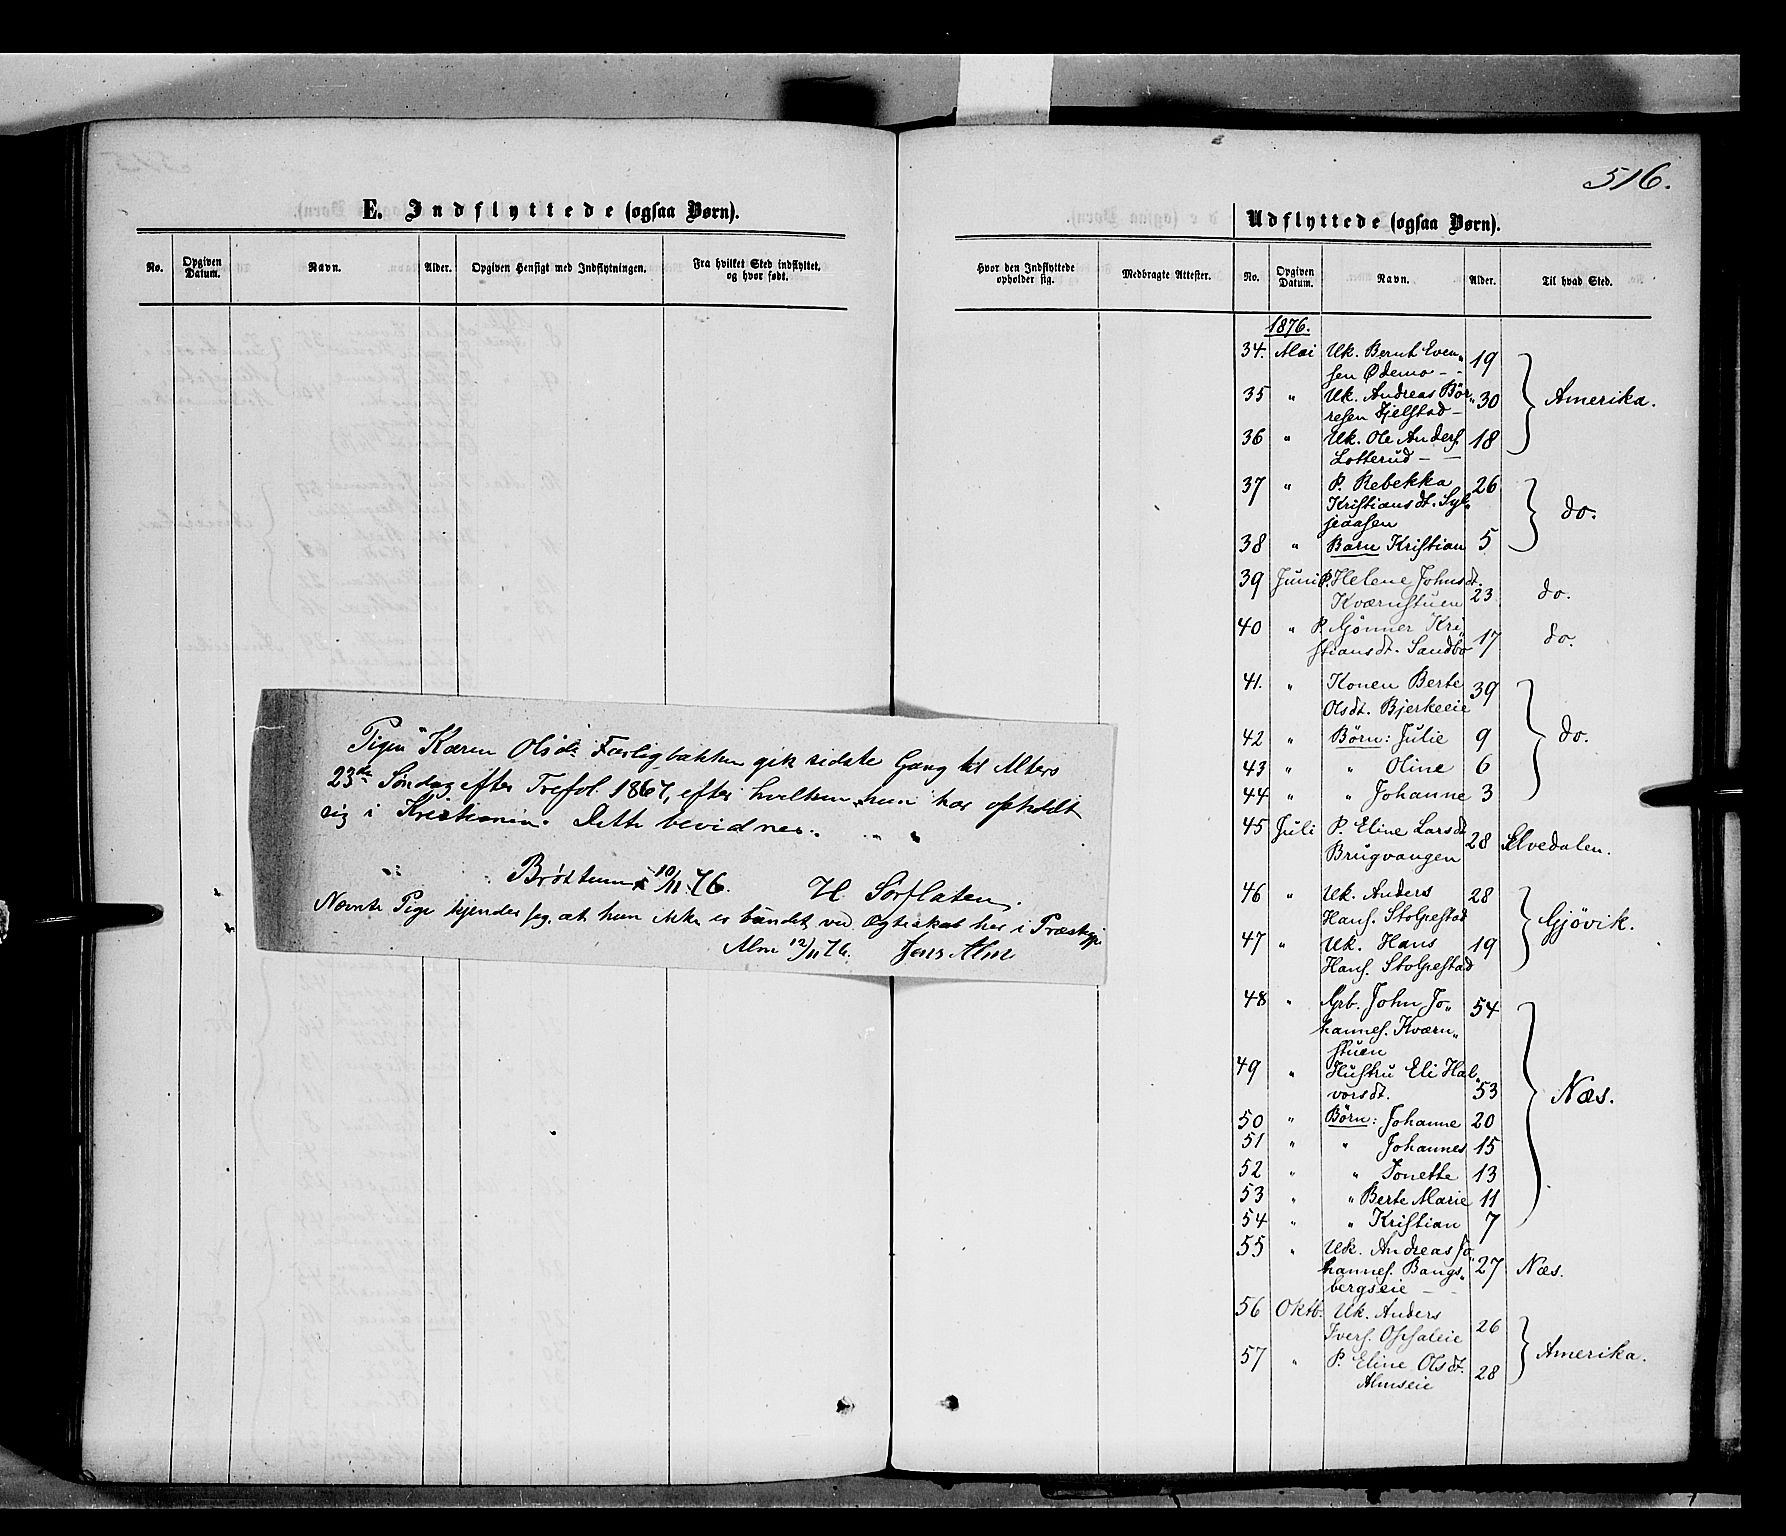 516.
E. Indflyttede (ogsaa Børn).
No.
Opgiven Datum.
Navn.
Alder.
Opgiven Hensigt med Indflytningen.
Fra hvilket Sted indflyttet, og hvor født.
Pigen Karen Olsdr. gik sidste Gang til Alters
23de Søndag efter Trefol. 1867, efter hvilken hun har opholdt
sig i Kristiania. Dette bevidnes.
Brøttum 10/11 76. H. Sørflaten.
Nævnte Pige kjender jeg, at hun ikke er bundet ved Ægteskab her i Præstegj
Alm 12/11 76. Jens Alm
Udflyttede (ogsaa Børn).
Hvor den Indflyttede opholder sig.
Medbragte Attester.
No.
Opgiven Datum.
Navn.
Alder.
Til hvad Sted.
1876.
34. Mai Uk. Bernt Even„
sen Ødemo - - 19
35 " Uk. Andreas Bör„ 30 Amerika.
resen Fjelstad -
36 " Uk. Ole Anders. 18
Lotterud - -
37 " P. Rebekka 26
Kristiansdt. Syl„ do.
jeaasen
38 " Barn Kristian 5
39 Juni P. Helene Johnsdt.
Kværnstuen 23 do.
40 " P. Gjönner Kri„
stiansdt. Sandbo 17 do.
41. " Konen Berte 39
Olsdt. Bjerkeeie
42 " Børn: Julie 9 do.
43 " " Oline 6
44 " " Johanne 3
45 Juli P. Eline Larsdt
Brugvangen 28 Elvedalen.
46 " Uk. Anders 28
Hans. Stolpestad Gjøvik.
47 " Uk. Hans 19
Hans. Stolpestad
48 " Grb. John Jo„ 54
hannes. Kværn„
stuen
49 " Hustru Eli Hal„
vorsdt. 53 Næs.
50 " Børn: Johanne 20
51 " " Johannes 15
52 " " Jonette 13
53 " " Berte Marie 11
54 " " Kristian 7
55 " Uk. Andreas Jo„
hannes. Bangs„ 27 Næs.
bergseie - -
56 Oktb. Uk. Anders
Ivers. Opsaleie 26
57 " P. Eline Olsdt. Amerika.
Almseie 28